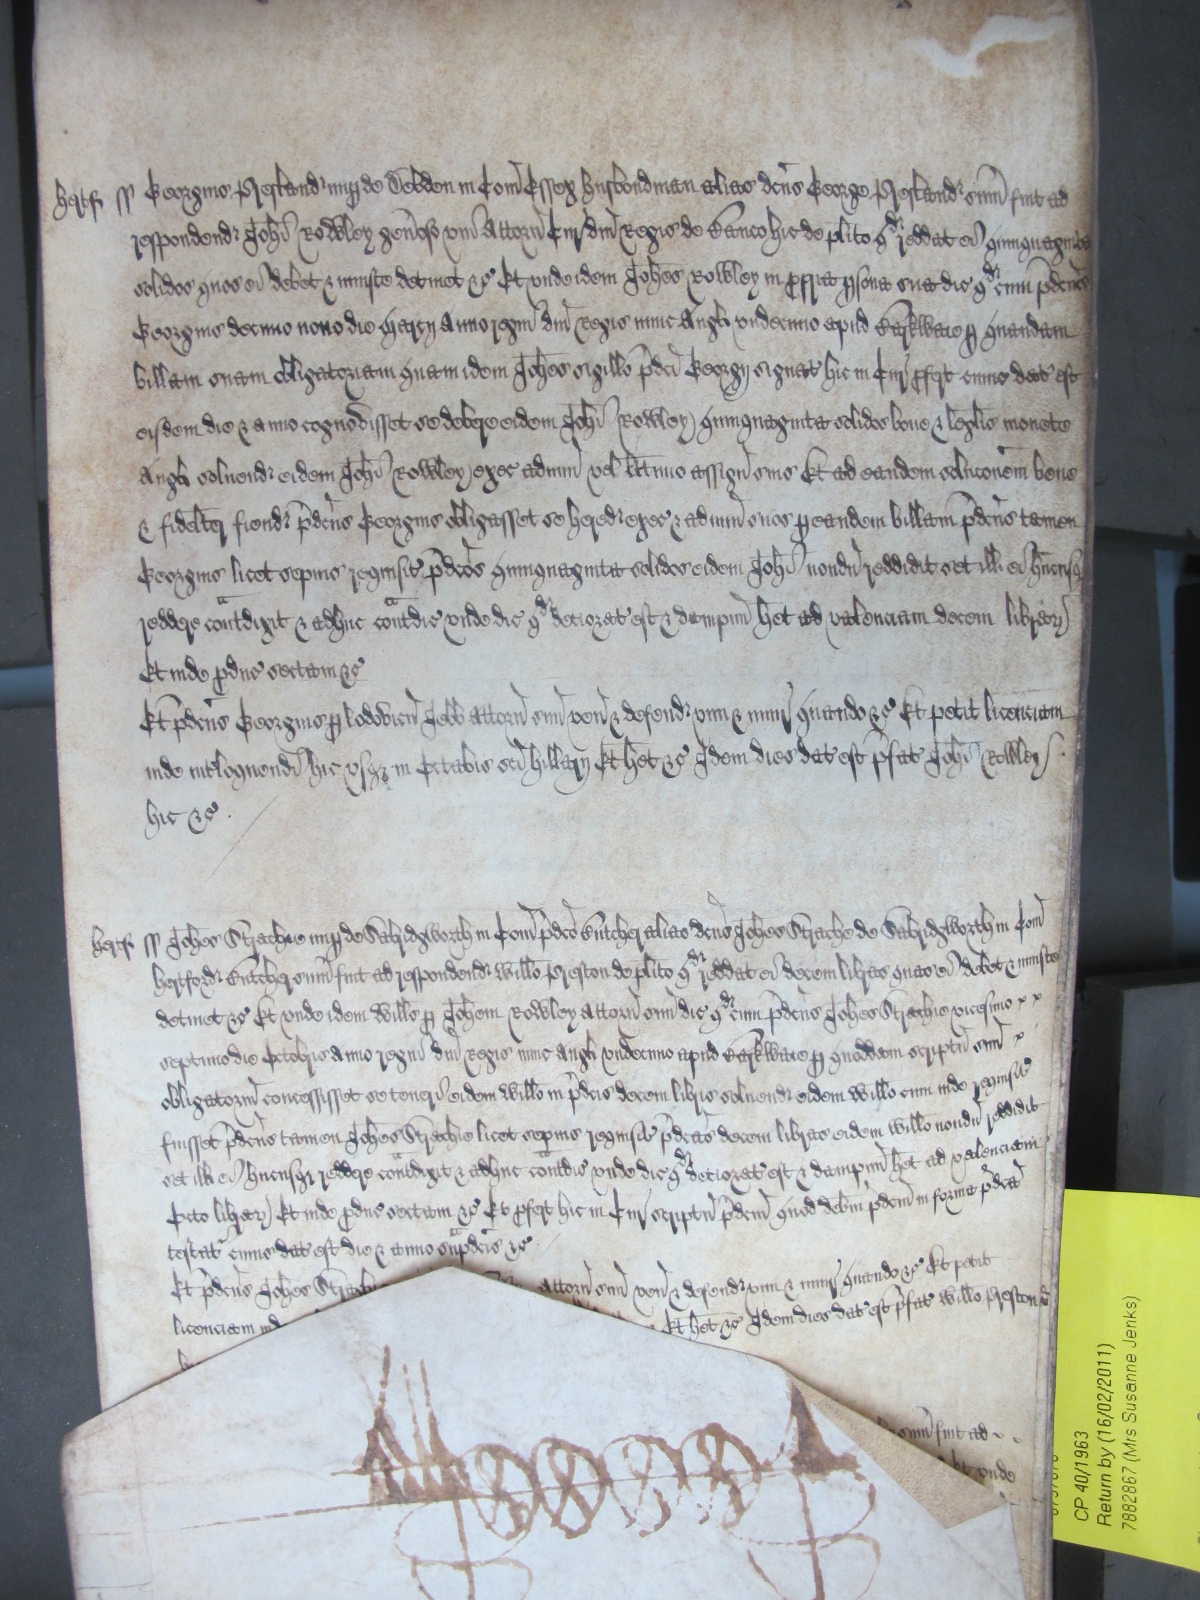 Hertf ss Georgius Prestland nup de Debden in Com Essex husbondman alias dcus George Prestland sum fuit ad
respondend Johi Rowley genoso uni Attorn Cur dni Regis de Banco hic de plito qd reddat ei quinquaginta
solidos quos ei debet & iniuste detinet &c Et unde idem Johes Rowley in ppria psona sua dic qd cum pdcus
Georgius decimo nono die Marcij Anno regni dni Regis nunc Angl undecimo apud Barkwaie p quandam
billam suam obligatoriam quam idem Johes sigillo pdci Georgij signat hic in Cur pfert cuius dat est
eisdem die & anno cognovisset se debere eidem Johi Rowley quinquaginta solidos bone & leglis monete
Angl solvend eidem Johi Rowley exec admin vel suis Et ad eandem soluconem bene
& fidelit fiend pdcus Georgius obligasset se hered exec & admin suos p eandem billam pdcus tamen
Georgius licet sepius requisit pdcos quinquaginta solidos eidem Johi nondu reddidit set ill ei hucusq
reddere contdixit & adhuc contdic unde dic qd deteriorat est & dampnu het ad valenciam decem librar
Et inde pduc sectam &c
Et pdcus Georgius p lodovicu Jebb attorn suu ven & defend vim & iniur quando &c Et petit licenciam
inde intloquendi hic usq in Octabis sci hillarij Et het &c Idem dies dat est pfat Johi Rowley
hic &c
Hertf ss Johes Strachie nup de Sabridgworth in Com pdco Butcher alias dcus Johes Strache de Sabridgworth in Com
hertford Butcher sum fuit ad respondend Willo Preston de plito qd reddat ei decem libras quas ei debet & iniuste
detinet &c Et unde idem Willus p Johem Rowley Attorn suu dic qd cum pdcus Johes Strachie vicesimo
septimo die Octobris anno regni dni Regis nunc Angl undecimo apud Barkwaie p quoddam scriptu suu
obligatoriu concessisset se teneri eidem Willo in pdcis decem libris solvend eidem Willo cum inde requisit
fuisset pdcus tamen Johes Strachie licet sepius requisit pdcas decem libras eidem Willo nondu reddidit
set ill ei hucusq reddere contdixit & adhuc contdic unde dic qd deteriorat est & dampnu het ad valenciam
Octo librar Et inde pduc sectam &c Et pfert hic in Cur scriptu pdcm quod debitu pdcm in forma pdca
testat cuius dat est die & anno supdcis &c
Et pdcus Johes Strach attorn suu ven & defend vim & iniur quando &c Et petit
licenciam ind Et het &c Idem dies dat est pfat Willo Preston
sum fuit ad
unde
CP 40/1963
Return by (16/02/2011)
7882867 (Mrs Susanne Jenks)